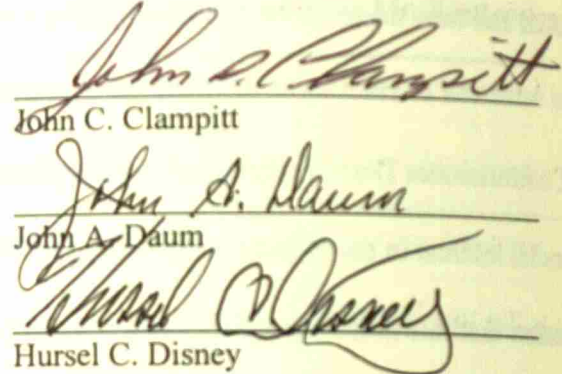 John C. Clampitt
John C. Clampitt
John A. Daum
John A. Daum
Hursel C. Disney
Hursel C. Disney